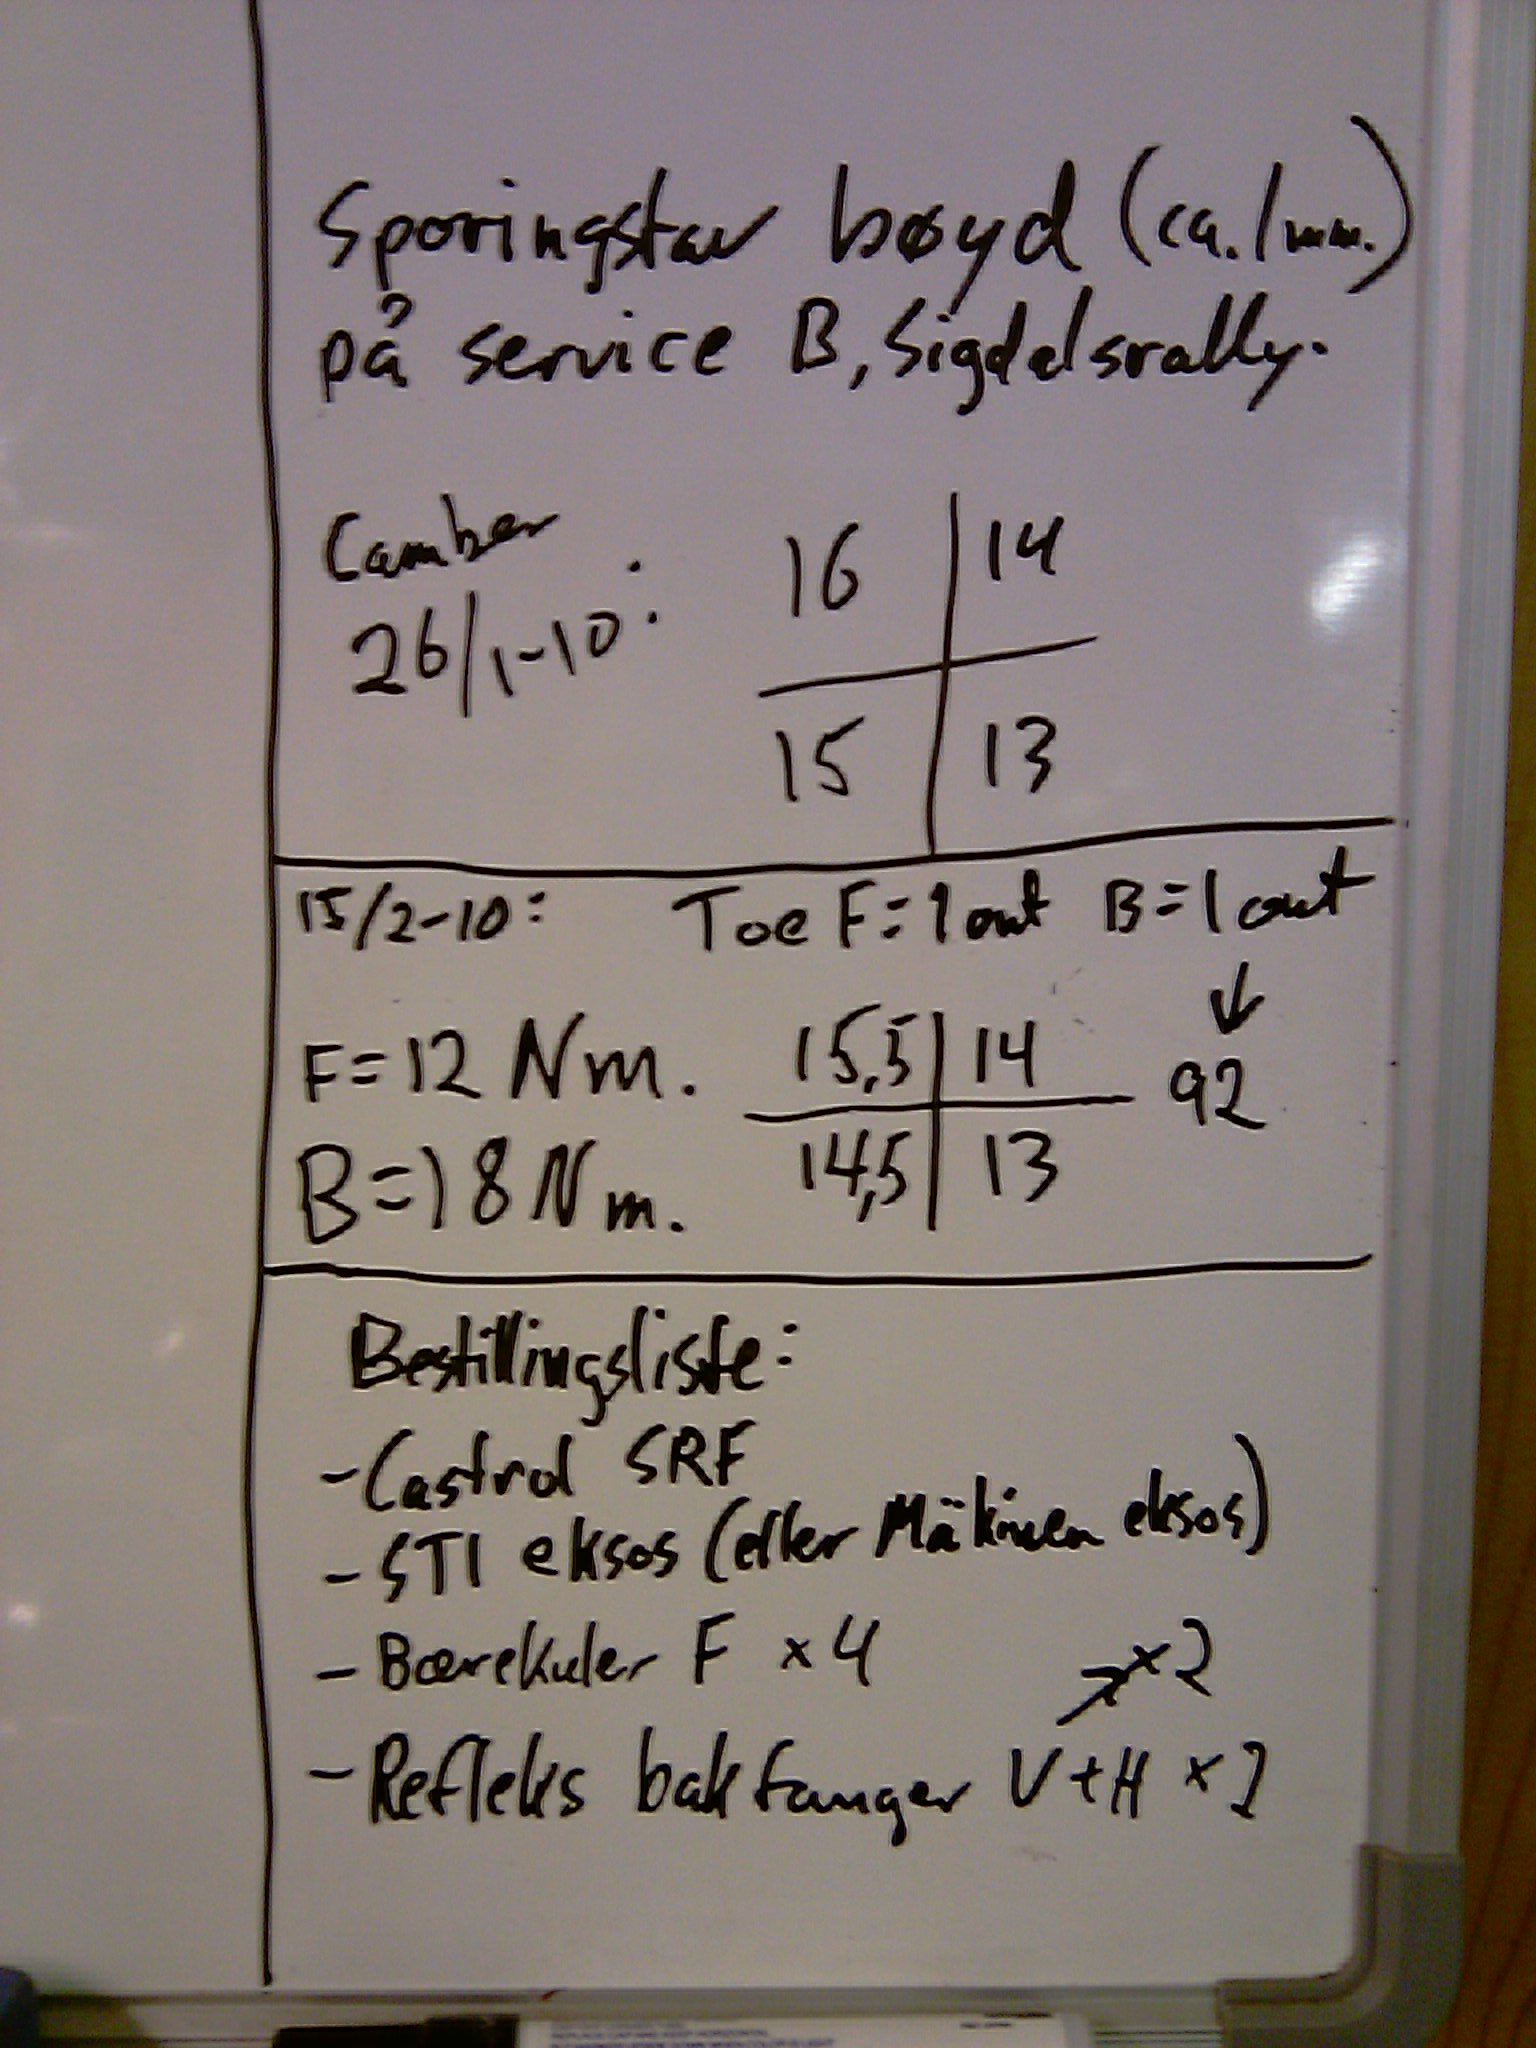 Sporingstav bøyd (ca. 1 mm.)
på service B, Sigdalsrally.
Camber
26/1-10:
16 14
15 13
15/2-10: Toe F=1 out B=1 out
↓
F=12 Nm. 15,5 14 92
B=18 Nm. 14,5 13
Bestillingsliste:
- Castrol SRF
- STI eksos (eller Mäkinen eksos)
- Bærekuler F x4
x2
- Refleks bakfanger V+H x2